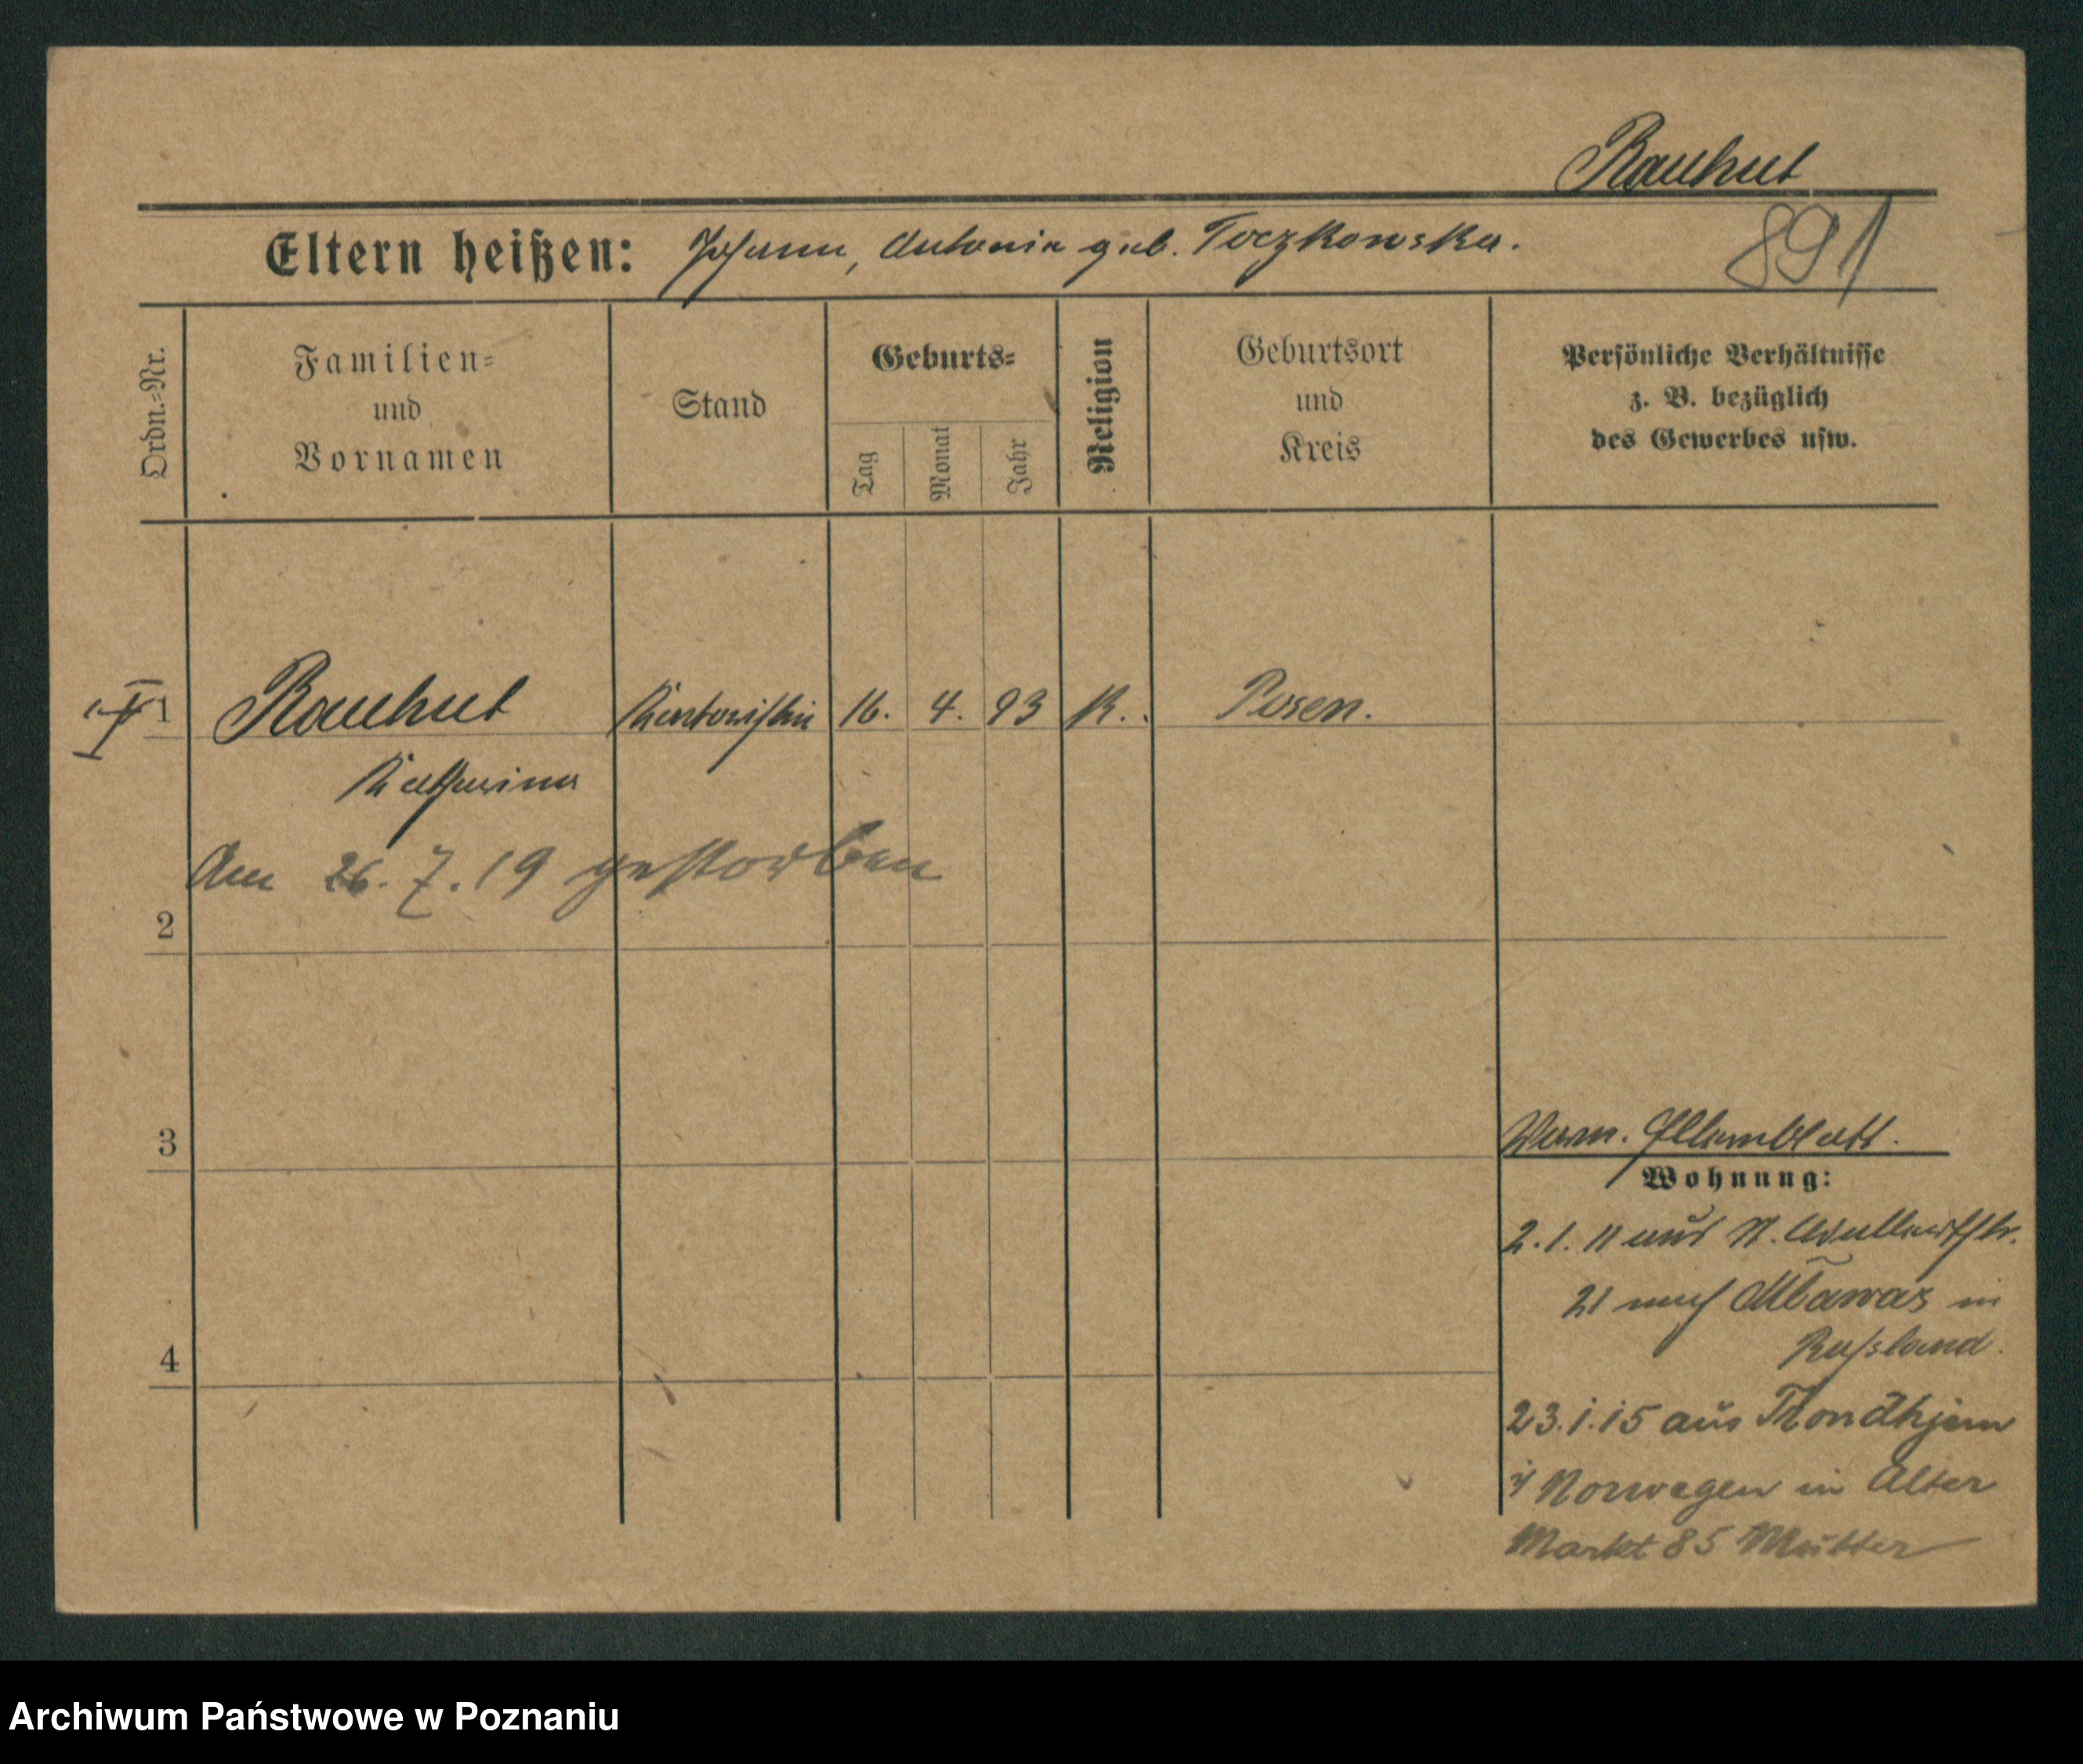 Rauhut
Eltern heißen: Johann, Antonia geb. Toczkowska.
891
Ordn.=Nr.
Familien=
und
Vornamen
Stand
Geburts=
Tag
Monat
Jahr
Religion
Geburtsort
und
Kreis
Persönliche Verhältnisse
z. B. bezüglich
des Gewerbes usw.
1 Rauhut Kontoristin 16. 4. 93 K. Posen.
Katharina
Am 26. 7. 19 gestorben
2
3
Elternblatt.
Wohnung:
2. 1. 11 aus N.
21 nach in
Russland.
23. 1. 15 aus Trondhjem
i/ Norwegen in Alter
Markt 85 Mutter
4
Archiwum Państwowe w Poznaniu